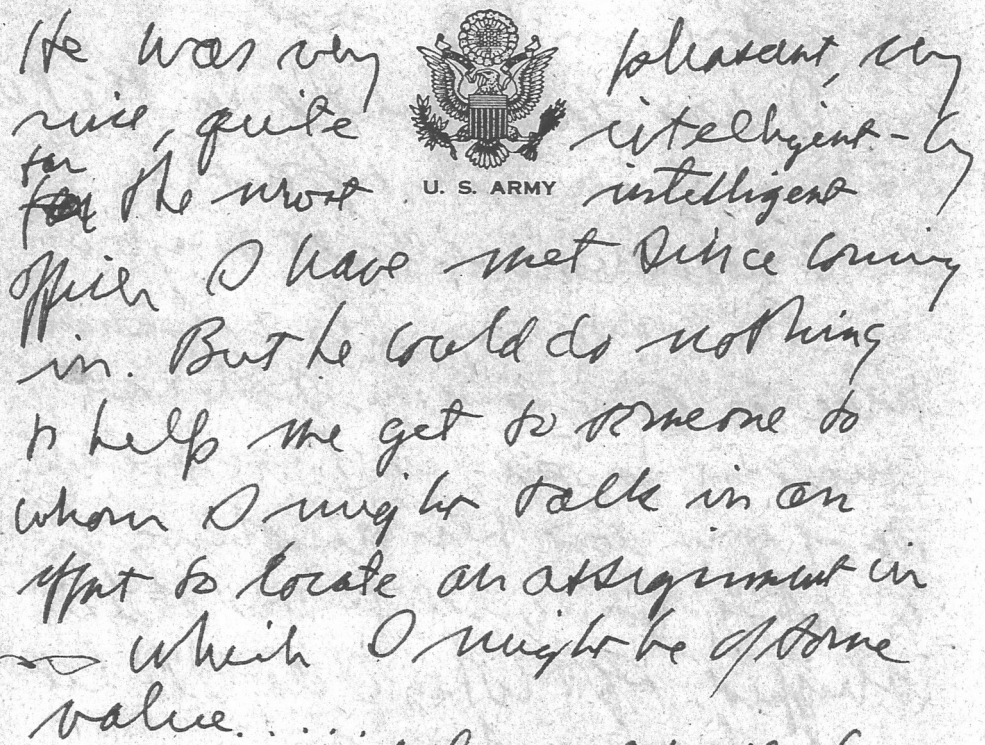 He was very pleasant, very
nice, quite intelligent - by
far the most intelligent
U. S. ARMY
officer I have met since coming
in. But he could do nothing
to help me get to someone to
whom I might talk in an
effort to locate an assignment in
which I might be of some
value.....